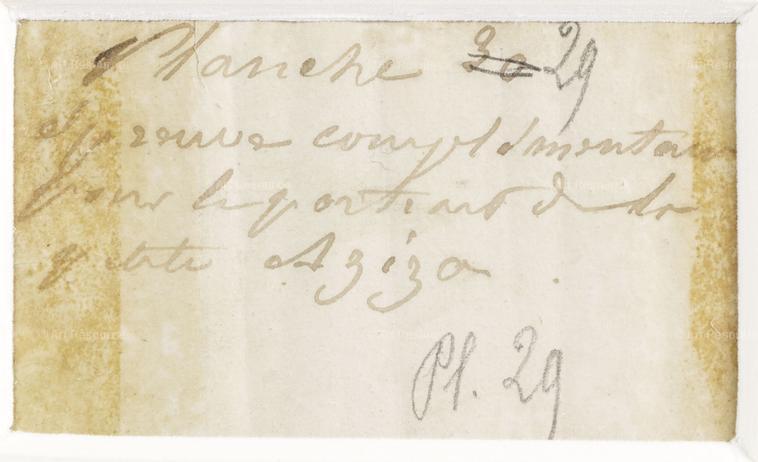 Planche 30 29
épreuve complémentaire
pour le portrait de la
petite Aziza .
Pl. 29